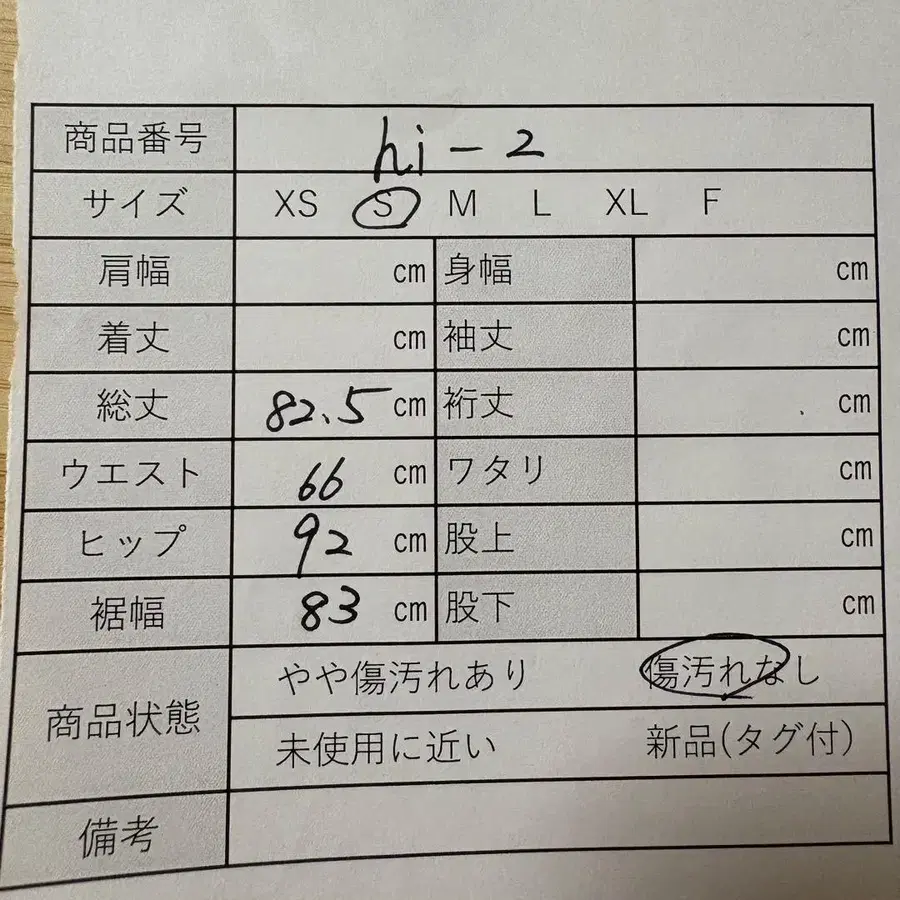 商品番号 hi-2
サイズ XS S M L XL F
肩幅 cm 身幅 cm
着丈 cm 袖丈 cm
総丈 82.5 cm 裄丈 cm
ウエスト 66 cm ワタリ cm
ヒップ 92 cm 股上 cm
裾幅 83 cm 股下 cm
商品状態 やや傷汚れあり 傷汚れなし
未使用に近い 新品(タグ付)
備考